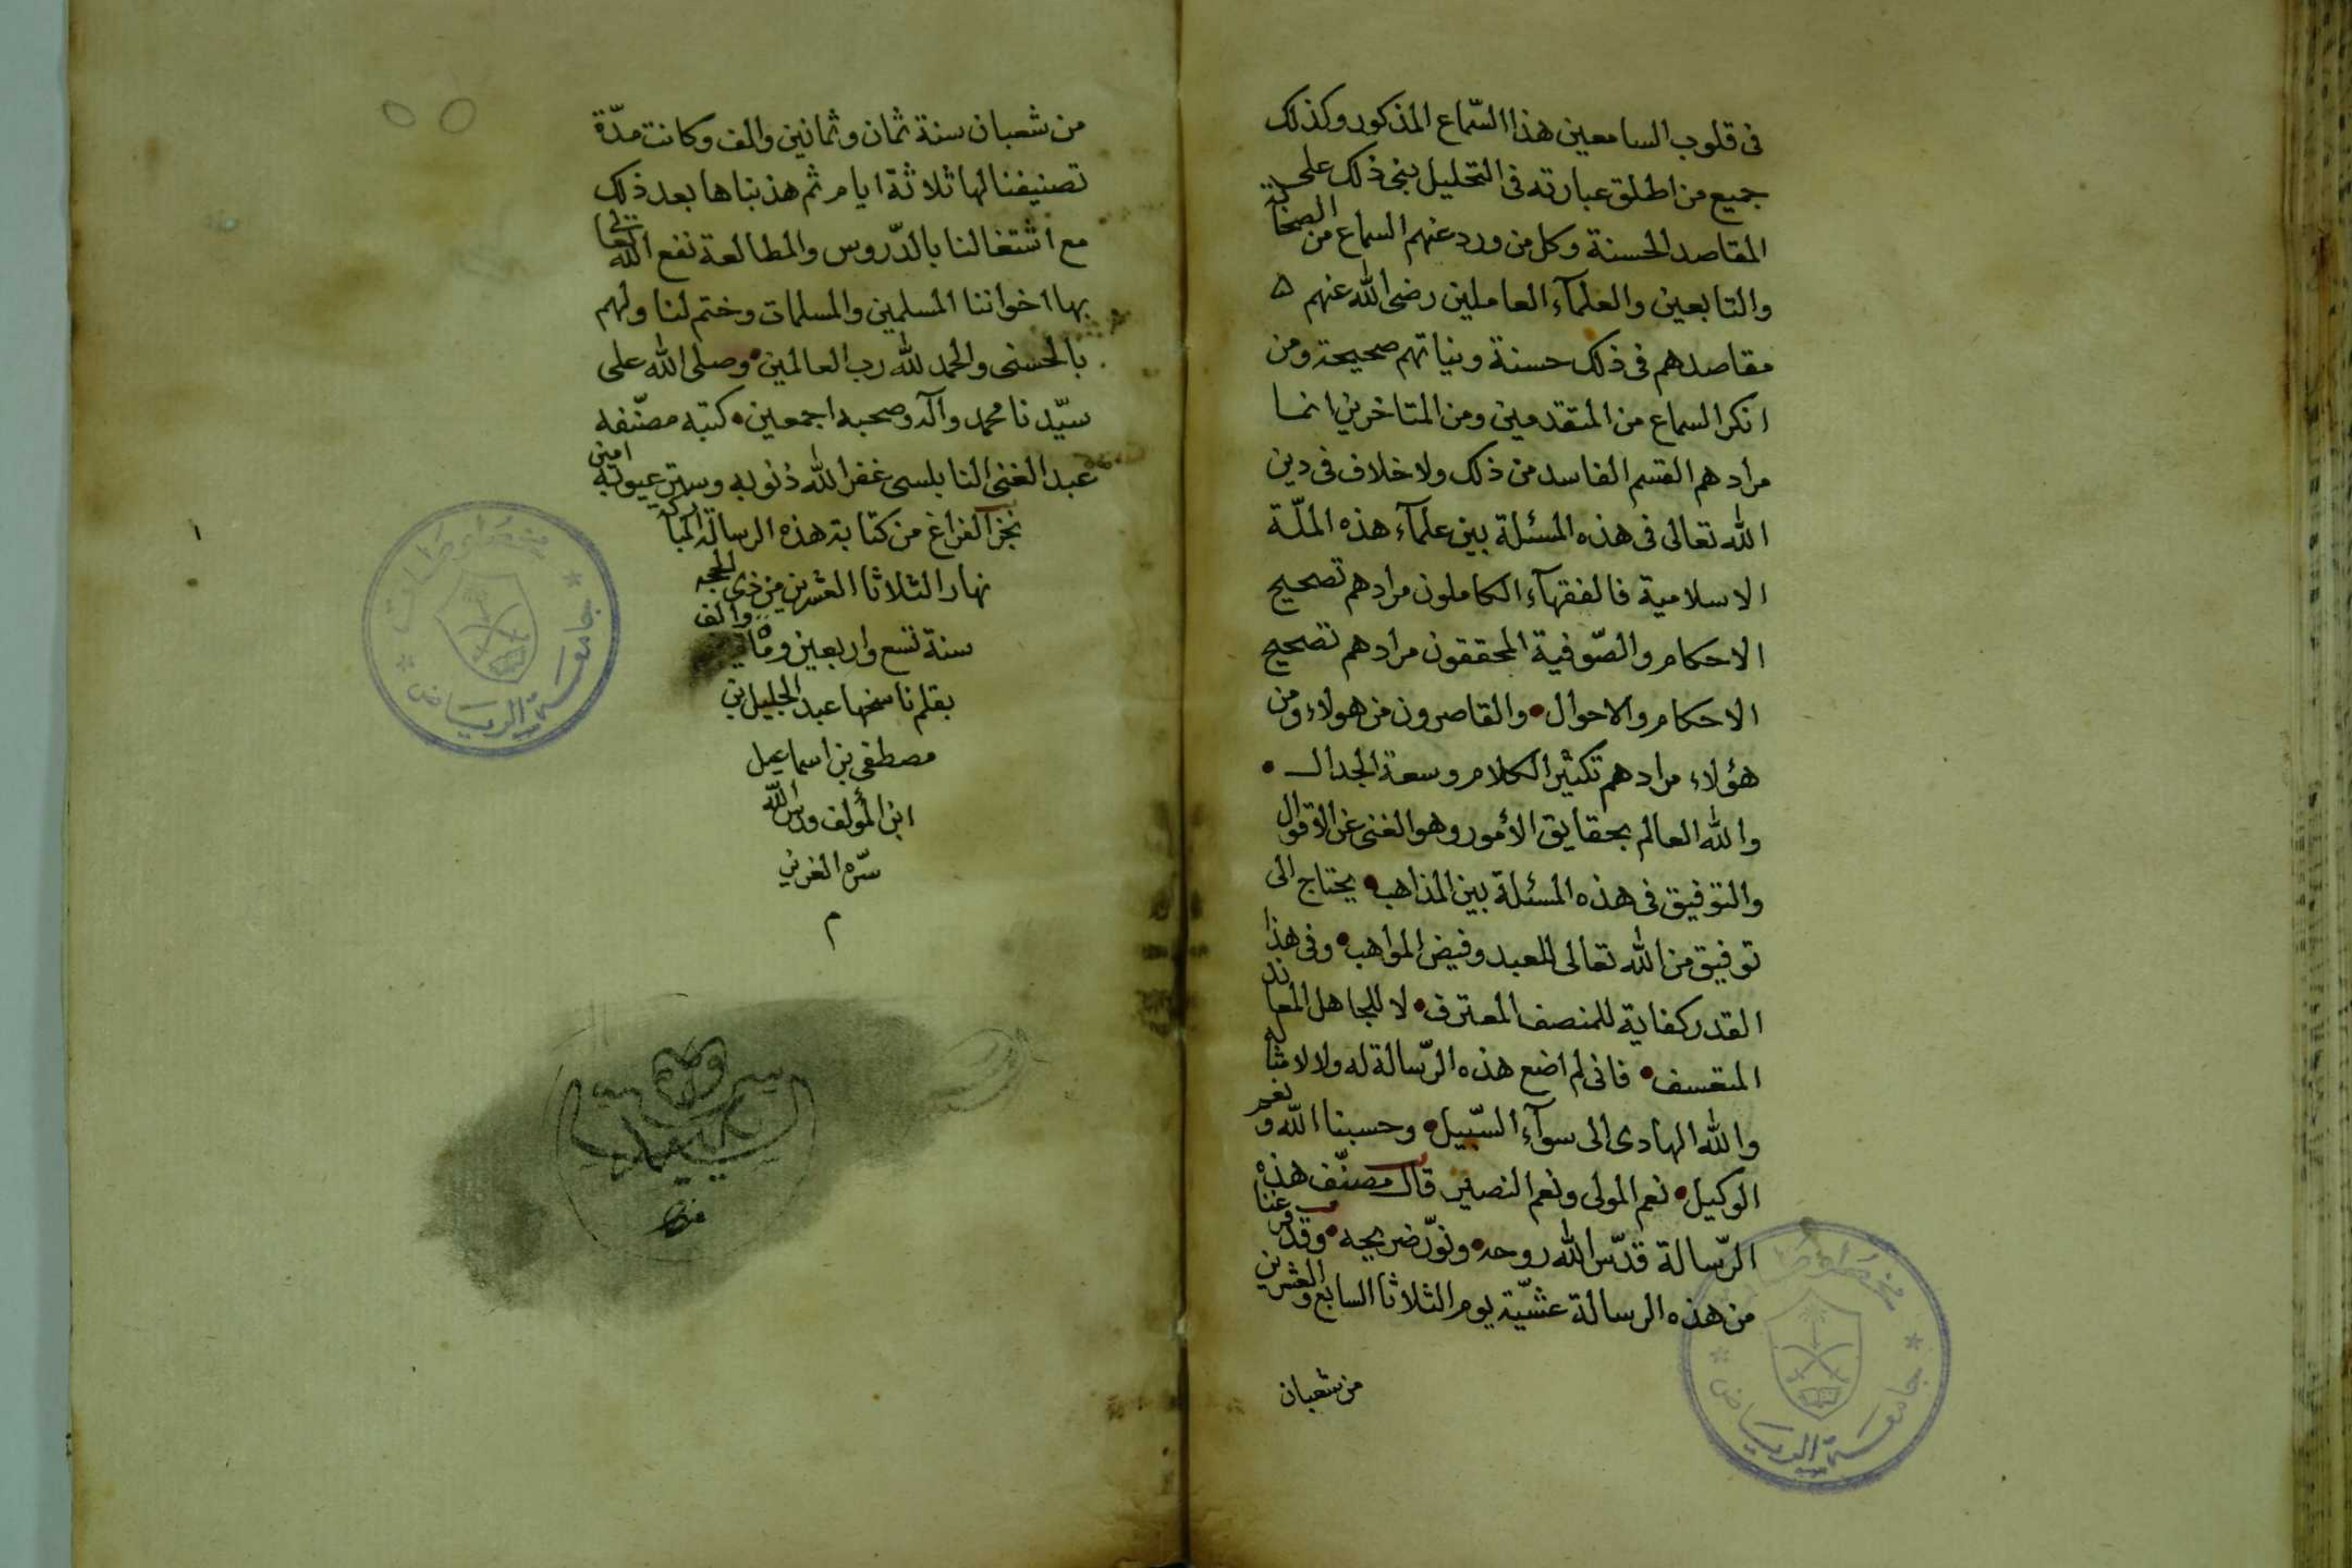 فى قلوب السامعين هذا السّماع المذكور وكذلك
جميع من اطلق عبارته فى التحليل ينبى ذلك على
المقاصد الحسنة وكل من ورد عنهم السماع من الصحابة
والتابعين والعلمآء العاملين رضى الله عنهم ه
مقاصدهم فى ذلك حسنة ونياتهم صحيحة ومن
انكر السماع من المتقدمين ومن المتاخرين انما
مرادهم القسم الفاسد من ذلك ولا خلاف فى دين
الله تعالى فى هذه المسئلة بين علمآء هذه الملّة
الاسلامية فالفقهآء الكاملون مرادهم تصحيح
الاحكام والصّوفية المحققون مرادهم تصحيح
الاحكام والاحوال • والقاصرون من هولاء ومن
هؤلاء مرادهم تكثير الكلام وسعة الجدال •
والله العالم بحقايق الأمور وهو الغنى عن الاقوال
والتوفيق فى هذه المسئلة بين المذاهب • يحتاج الى
توفيق من الله تعالى للعبد وفيض المواهب • وفى هذا
القدر كفاية للمنصف المعترف • لا للجاهل المعاند
المتعسف • فانى لم اضع هذه الرّسالة له ولا لامثاله
والله الهادى الى سوآء السّبيل • وحسبنا الله ونعم
الوكيل • نعم المولى ونعم النصير قال مصنّف هذه
الرّسالة قدّس الله روحه • ونوّر ضريحه • وقد فرغنا
من هذه الرسالة عشيّة يوم الثلاثا السابع والعشرين
من شعبان
من شعبان سنة ثمان وثمانين والف وكانت مدّة
تصنيفنا لها ثلاثة ايام ثم هذبناها بعد ذلك
مع اشتغالنا بالدّروس والمطالعة نفع الله تعالى
بها اخواننا المسلمين والمسلمات وختم لنا ولهم
بالحسنى والحمد لله رب العالمين • وصلى الله على
سيّدنا محمد وآله وصحبه اجمعين • كتبه مصنّفه
عبد الغنى النابلسى غفر الله ذنوبه وستر عيوبه امين
نجز الفراغ من كتابة هذه الرسالة المباركة
نهار الثلاثا العشرين من ذى الحجه
سنة تسع واربعين وماية والف
بقلم ناسخها عبد الجليل بن
مصطفى بن اسماعيل
ابن المؤلف قدس الله
سرّه العزيز
م
مخطوطات
جامعة الرياض
مخطوطات
جامعة الرياض